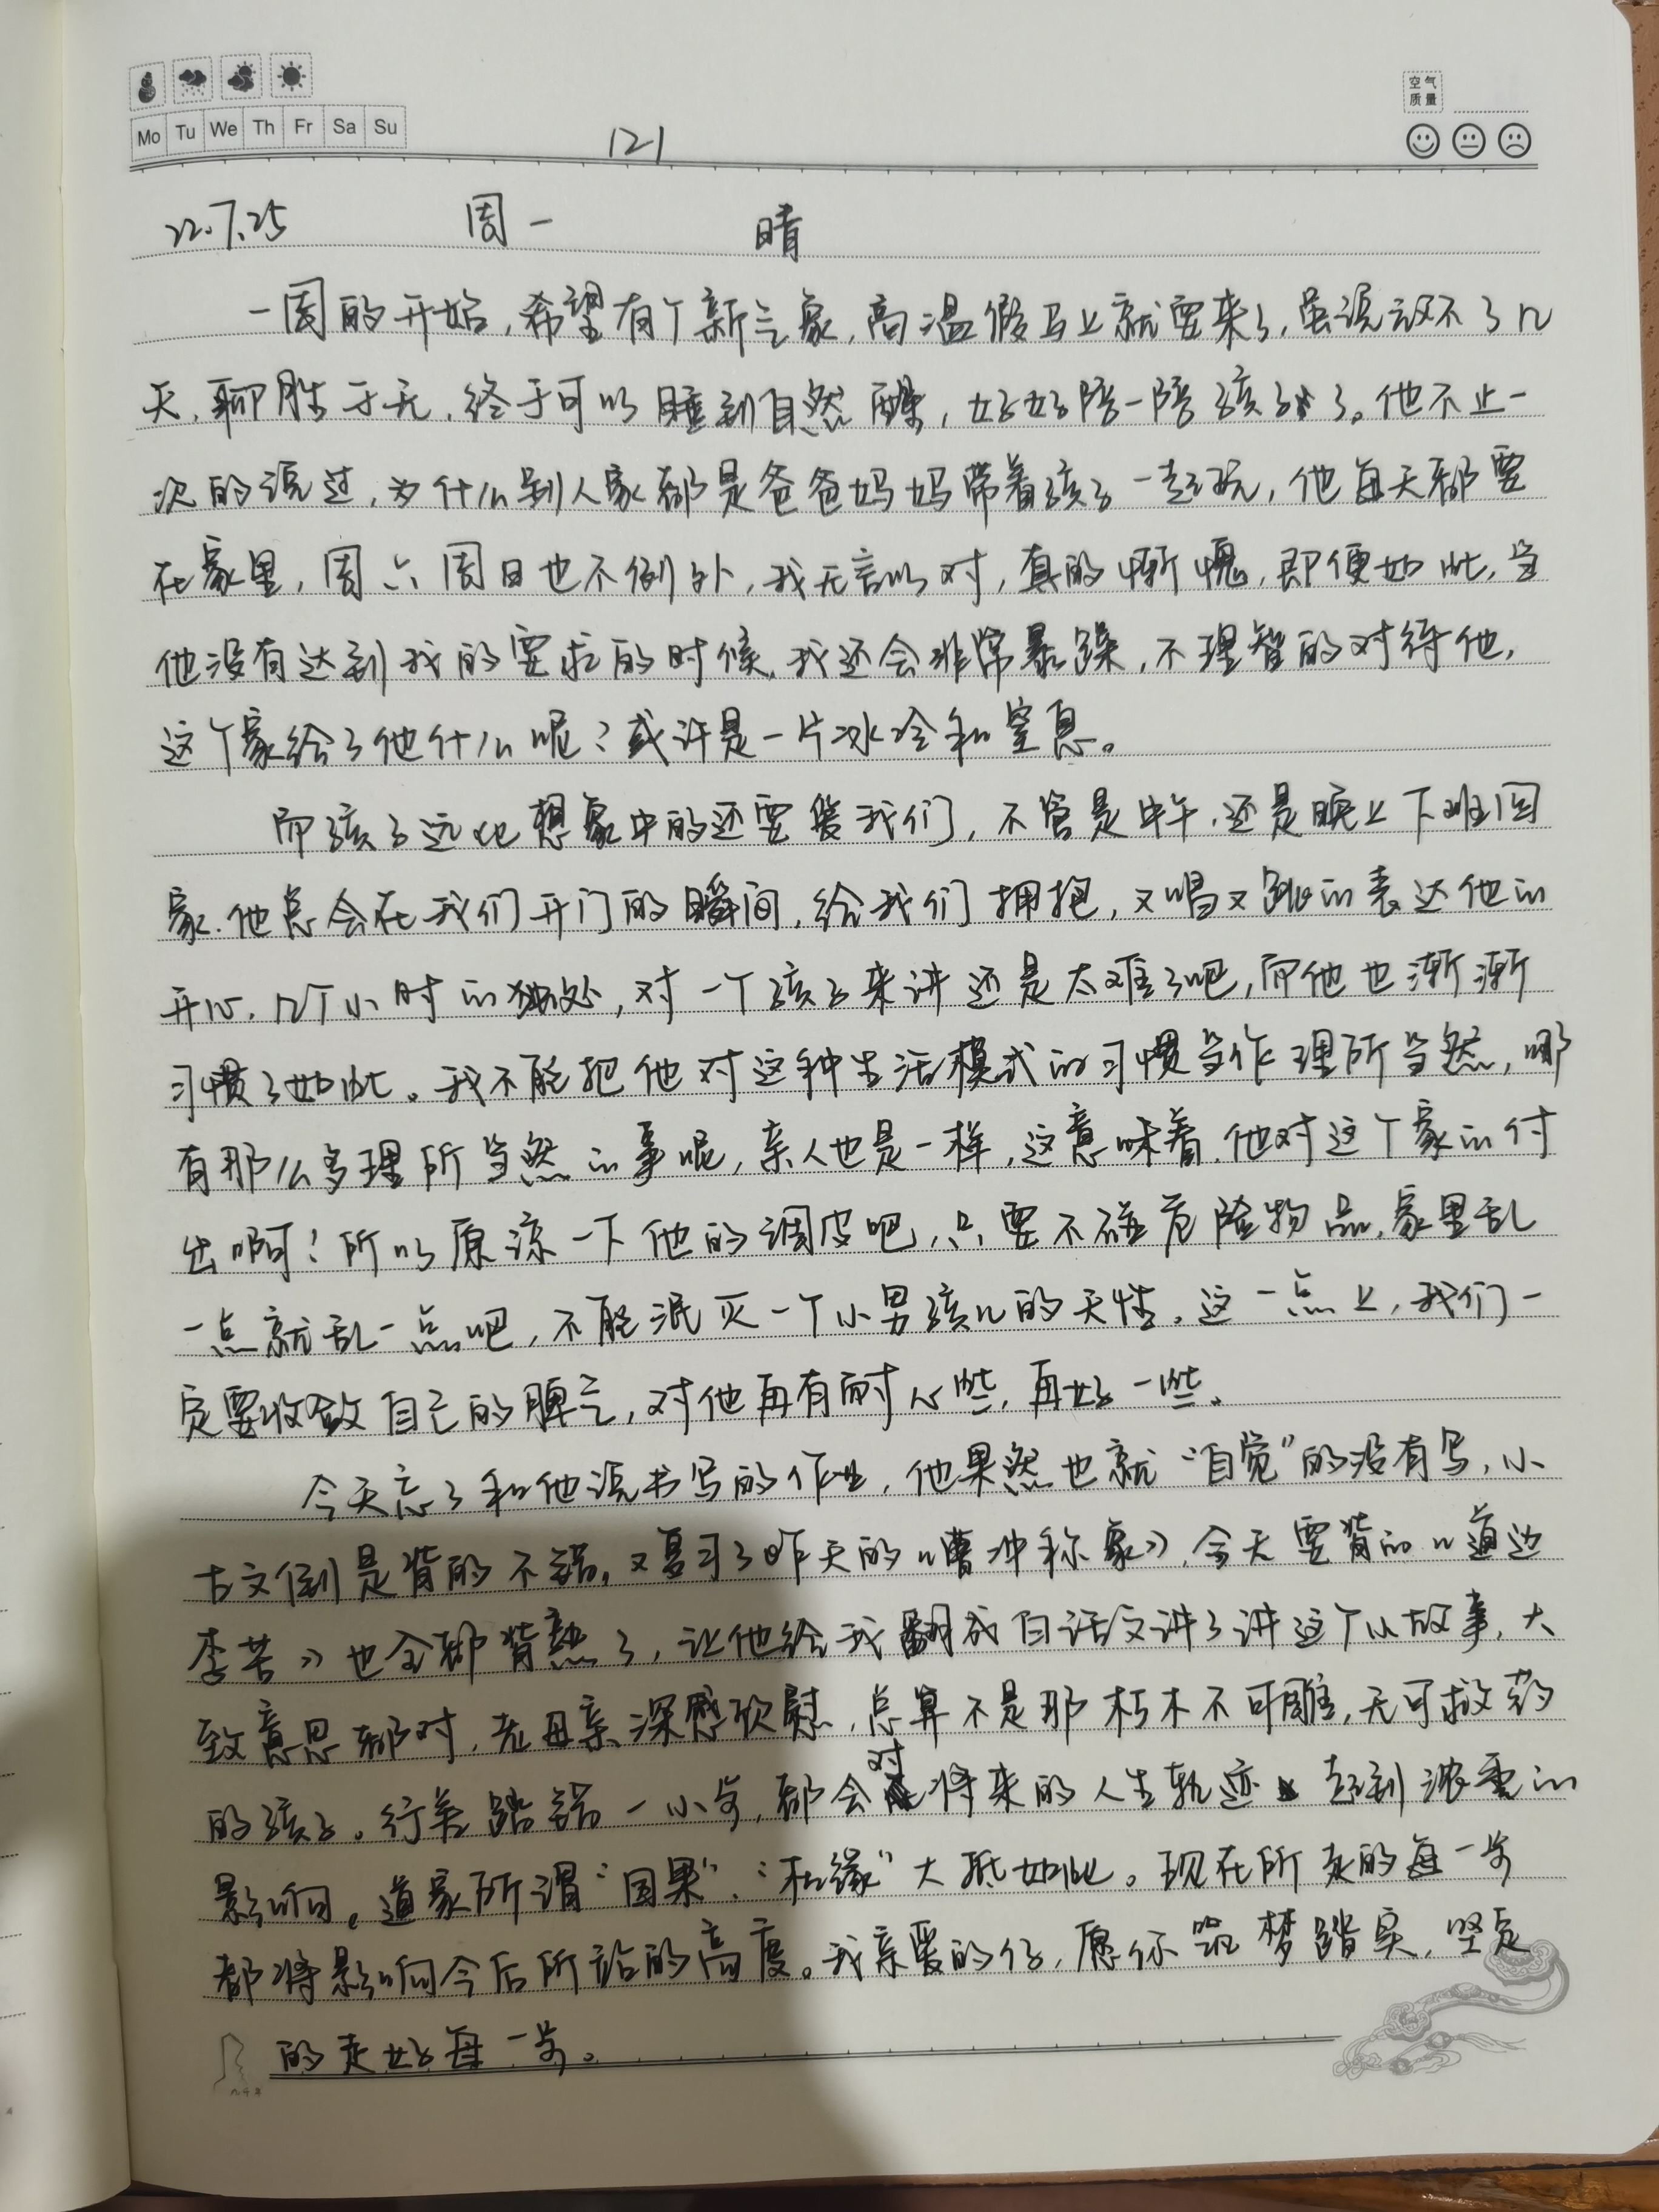 空气
质量
Mo Tu We Th Fr Sa Su
121
22.7.25 周一 晴
一周的开始,希望有个新气象,高温假马上就要来了,虽说放不了几
天,聊胜于无,终于可以睡到自然醒,好好陪一陪孩子了。他不止一
次的说过,为什么别人家都是爸爸妈妈带着孩子一起玩,他每天都要
在家里,周六周日也不例外,我无言以对,真的惭愧,即便如此,当
他没有达到我的要求的时候,我还会非常暴躁,不理智的对待他,
这个家给了他什么呢?或许是一片冰冷和窒息。
而孩子远比想象中的还要爱我们,不管是中午,还是晚上下班回
家,他总会在我们开门的瞬间,给我们拥抱,又唱又跳的表达他的
开心,几个小时的独处,对一个孩子来讲还是太难了吧,而他也渐渐
习惯了如此。我不能把他对这种生活模式的习惯当作理所当然,哪
有那么多理所当然的事呢,亲人也是一样,这意味着,他对这个家的付
出啊!所以原谅一下他的调皮吧,只要不碰危险物品,家里乱
一点就乱一点吧,不能泯灭一个小男孩儿的天性。这一点上,我们一
定要收敛自己的脾气,对他再有耐心些,再好一些。
今天忘了和他说书写的作业,他果然也就“自觉”的没有写,小
古文倒是背的不错,又复习了昨天的《曹冲称象》,今天要背的《道边
李苦》也全都背熟了,让他给我翻成白话文讲了讲这个小故事,大
致意思都对,老母亲深感欣慰,总算不是那朽木不可雕,无可救药
的孩子。行差踏错一小步,都会对将来的人生轨迹起到浓重的
影响。道家所谓“因果”、“机缘”大抵如此。现在所走的每一步
都将影响今后所站的高度。我亲爱的仔,愿你筑梦踏实,坚定
的走好每一步。